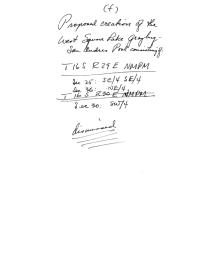 (f)
Proposed creation of the
West Square Lake Grayburg-
San Andres Pool consisting of:
T 16 S R 29 E NMPM
Sec 25: SE/4 SE/4
Sec 36: NE/4
T 16 S R 30 E NMPM
Sec 30: SW/4
dismissed